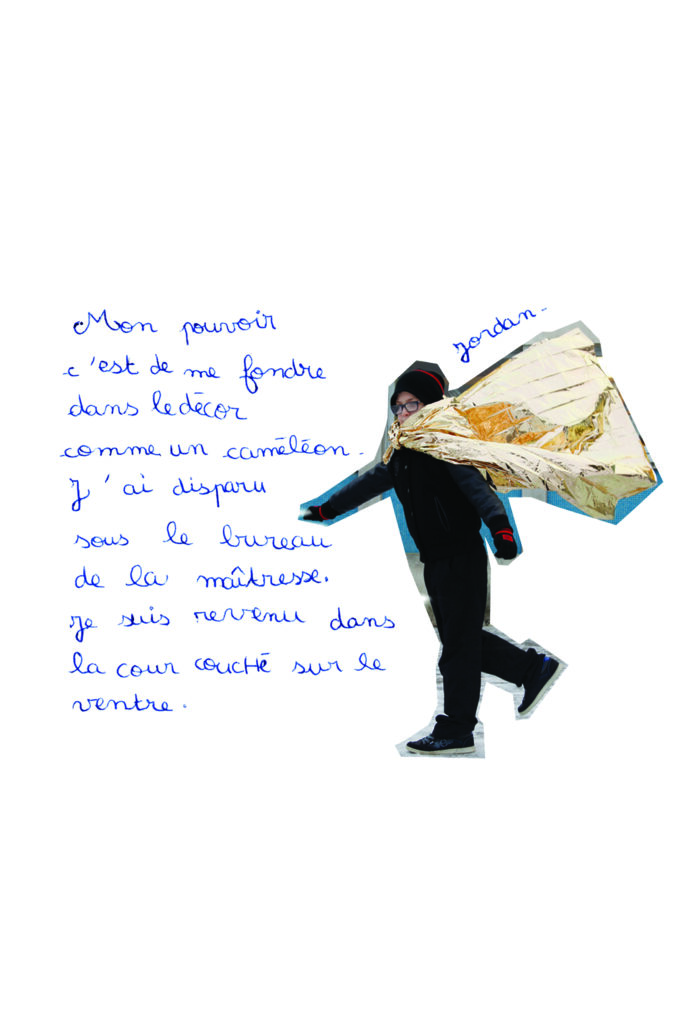 Mon pouvoir
c'est de me fondre
dans le décor
comme un caméléon.
J'ai disparu
sous le bureau
de la maîtresse.
je suis revenu dans
la cour couché sur le
ventre.
Jordan.